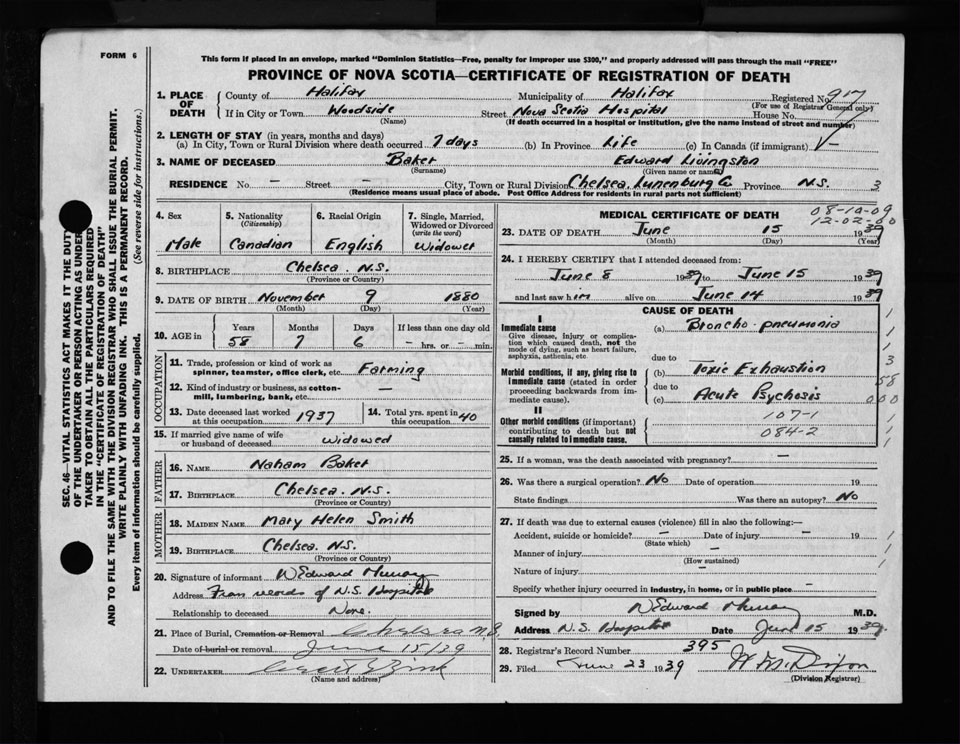 FORM 6
This form if placed in an envelope, marked "Dominion Statistics—Free, penalty for improper use $300," and properly addressed will pass through the mail "FREE"
PROVINCE OF NOVA SCOTIA—CERTIFICATE OF REGISTRATION OF DEATH
1. PLACE OF DEATH
County of Halifax Municipality of Halifax Registered No. 917
(For use of Registrar General only)
If in City or Town Woodside Street Nova Scotia Hospital House No.
(Name) (If death occurred in a hospital or institution, give the name instead of street and number)
2. LENGTH OF STAY (in years, months and days)
(a) In City, Town or Rural Division where death occurred 7 days (b) In Province Life (c) In Canada (if immigrant) —
3. NAME OF DECEASED Baker Edward Livingston
(Surname) (Given name or names)
RESIDENCE No. — Street — City, Town or Rural Division Chelsea, Lunenburg Co Province N.S. 3
(Residence means usual place of abode. Post Office Address for residents in rural parts not sufficient)
4. Sex Male
5. Nationality (Citizenship) Canadian
6. Racial Origin English
7. Single, Married, Widowed or Divorced (write the word) Widower
8. BIRTHPLACE Chelsea N.S.
(Province or Country)
9. DATE OF BIRTH November 9 1880
(Month) (Day) (Year)
10. AGE in Years Months Days If less than one day old
58 7 6 — hrs. or — min.
OCCUPATION
11. Trade, profession or kind of work as spinner, teamster, office clerk, etc. Farming
12. Kind of industry or business, as cotton-mill, lumbering, bank, etc. —
13. Date deceased last worked at this occupation 1937
14. Total yrs. spent in this occupation 40
15. If married give name of wife or husband of deceased Widowed
FATHER
16. NAME Naham Baker
17. BIRTHPLACE Chelsea. N.S.
(Province or Country)
MOTHER
18. MAIDEN NAME Mary Helen Smith
19. BIRTHPLACE Chelsea. N.S.
(Province or Country)
20. Signature of informant W Edward Murray
Address From records of N.S. Hospital
Relationship to deceased None.
21. Place of Burial, Cremation or Removal Chelsea N.S.
Date of burial or removal June 15/39
22. UNDERTAKER
(Name and address)
MEDICAL CERTIFICATE OF DEATH
08-10-09
12-02-00
23. DATE OF DEATH June 15 1939
(Month) (Day) (Year)
24. I HEREBY CERTIFY that I attended deceased from:
June 8 1939 to June 15 1939
and last saw him alive on June 14 1939
CAUSE OF DEATH
I
Immediate cause
Give disease, injury or complication which caused death, not the mode of dying, such as heart failure, asphyxia, asthenia, etc.
(a) Broncho-pneumonia
due to
Morbid conditions, if any, giving rise to immediate cause (stated in order proceeding backwards from immediate cause).
(b) Toxic Exhaustion
due to
(c) Acute Psychosis
II
Other morbid conditions (if important) contributing to death but not causally related to immediate cause.
107-1
084-2
25. If a woman, was the death associated with pregnancy? —
26. Was there a surgical operation? No Date of operation 19
State findings Was there an autopsy? No
27. If death was due to external causes (violence) fill in also the following:—
Accident, suicide or homicide? — Date of injury — 19
(State which)
Manner of injury —
(How sustained)
Nature of injury —
Specify whether injury occurred in industry, in home, or in public place —
Signed by W Edward Murray M.D.
Address N.S. Hospital Date June 15 1939
28. Registrar's Record Number 395
29. Filed June 23 1939 W M Dixon
(Division Registrar)
SEC. 46—VITAL STATISTICS ACT MAKES IT THE DUTY
OF THE UNDERTAKER OR PERSON ACTING AS UNDERTAKER TO OBTAIN ALL THE PARTICULARS REQUIRED
IN THE "CERTIFICATE OF REGISTRATION OF DEATH"
AND TO FILE THE SAME WITH THE DIVISION REGISTRAR WHO SHALL ISSUE THE BURIAL PERMIT.
WRITE PLAINLY WITH UNFADING INK. THIS IS A PERMANENT RECORD.
Every item of information should be carefully supplied. (See reverse side for instructions.)